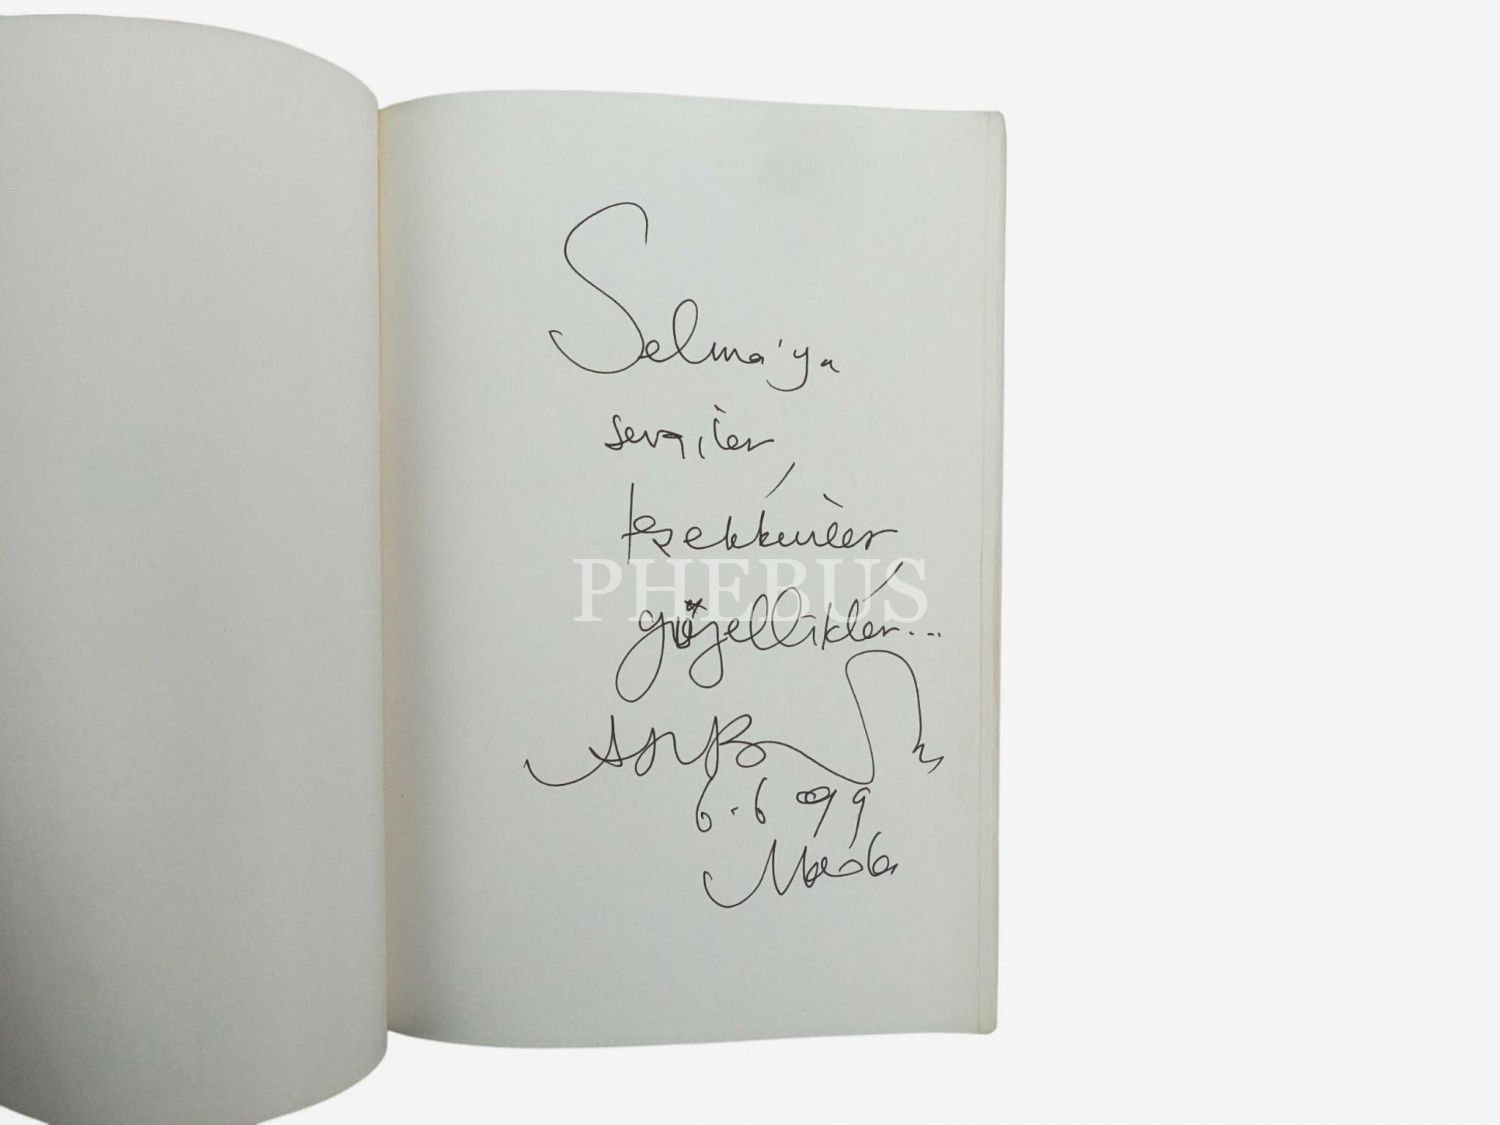 Selma'ya
sevgiler,
teşekkürler,
güzellikler...
6.6 99
Moda
PHEBUS